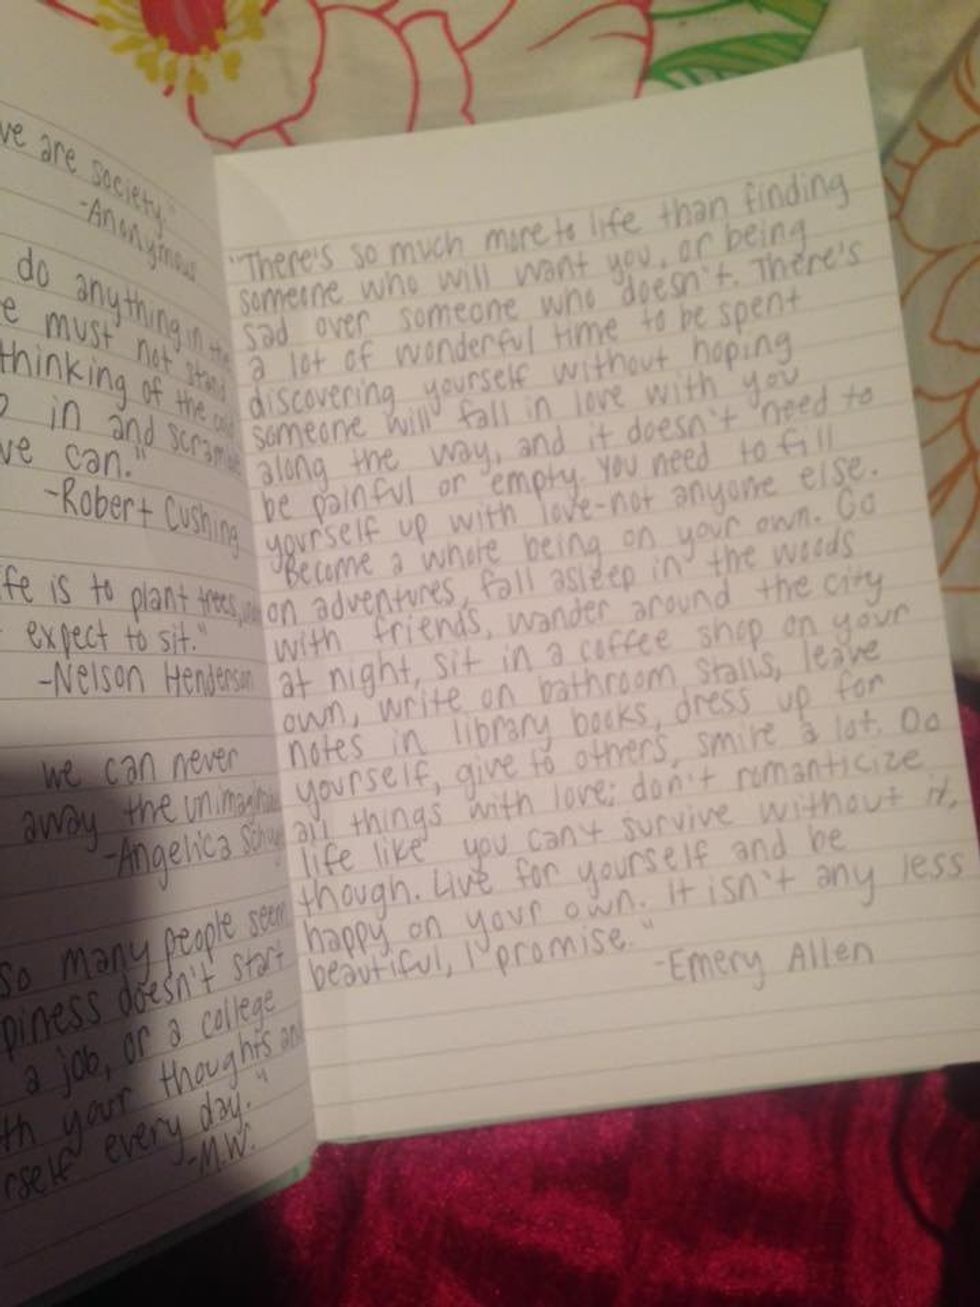 ve are society."
-Anonymous
do anything in the
e must not stand
thinking of the cold
in and scramble
ve can."
-Robert Cushing
fe is to plant trees,
expect to sit."
-Nelson Henderson
we can never
away the unimaginable
-Angelica
So many people seem
piness doesn't start
a job, or a college
th your thoughts and
rself every day."
-M.W.
"There's so much more to life than finding
someone who will want you, or being
sad over someone who doesn't. There's
a lot of wonderful time to be spent
discovering yourself without hoping
someone will fall in love with you
along the way, and it doesn't need to
be painful or empty. You need to fill
yourself up with love-not anyone else.
Become a whole being on your own. Go
on adventures, fall asleep in the woods
with friends, wander around the city
at night, sit in a coffee shop on your
own, write on bathroom stalls, leave
notes in library books, dress up for
yourself, give to others, smile a lot. Do
all things with love; don't romanticize
life like you can't survive without it,
though. Live for yourself and be
happy on your own. It isn't any less
beautiful, I promise."
-Emery Allen